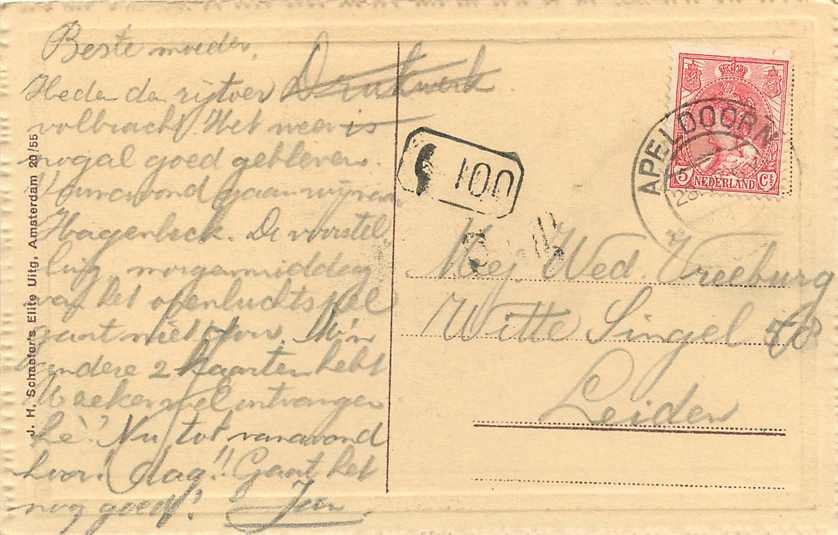 Beste moeder,
Heden de rijtoer Drukwerk
volbracht. Het weer is
nogal goed gebleven.
Vanavond gaan wij naar
Hagenbeck. De voorstel
ling morgenmiddag
van het openluchtspel
gaat niet door. M'n
andere 2 kaarten hebt
U zeker wel ontvangen
hè? Nu tot vanavond
hoor! dag!! Gaat het
nog goed? Jan
J. H. Schaefer's Elite Uitg. Amsterdam 20/55
100
APELDOORN
28
5 NEDERLAND Ct
Mej. Wed. Vreeburg
Witte Singel 58
Leiden